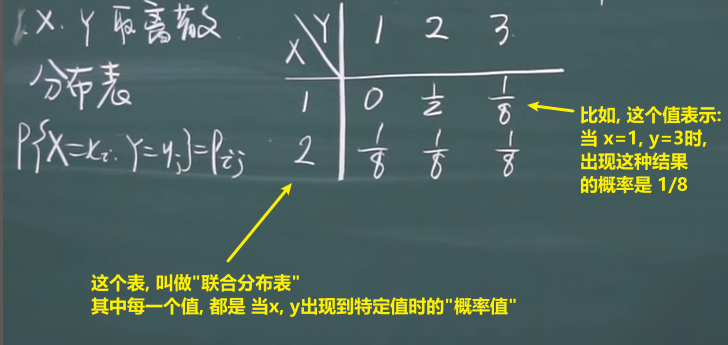 1. X. Y 取离散
分布表
P{X=xᵢ. Y=yⱼ}=Pᵢⱼ
X Y 1 2 3
1 0 1/2 1/8
2 1/8 1/8 1/8
比如, 这个值表示:
当 x=1, y=3时,
出现这种结果
的概率是 1/8
这个表, 叫做"联合分布表"
其中每一个值, 都是 当x, y出现到特定值时的"概率值"